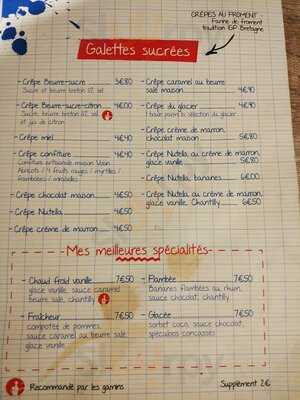 CRÊPES AU FROMENT
Farine de froment
tradition IGP Bretagne
Galettes sucrées
- Crêpe Beurre-sucre 3€80
Sucre et beurre breton 1/2 sel
- Crêpe Beurre-sucre-citron 4€00
Sucre, beurre breton 1/2 sel
et jus de citron
- Crêpe miel 4€40
- Crêpe confiture 4€40
Confiture artisanale maison
Abricots / 4 fruits rouges / myrtilles /
framboises / mirabelles
- Crêpe chocolat maison 4€50
- Crêpe Nutella 4€50
- Crêpe crème de marron 4€50
- Crêpe caramel au beurre
salé maison 4€90
- Crêpe du glacier 4€90
1 boule parmi la sélection du glacier
- Crêpe crème de marron,
chocolat maison 5€80
- Crêpe Nutella ou crème de marron,
glace vanille 5€80
- Crêpe Nutella, bananes 6€00
- Crêpe Nutella ou crème de marron,
glace vanille, Chantilly 6€50
- Mes meilleures spécialités -
- Chaud froid vanille 7€50
glace vanille, sauce caramel
beurre salé, chantilly
- Fraîcheur 7€50
compotée de pommes,
sauce caramel au beurre salé,
glace vanille
- Flambée 7€50
Bananes flambées au rhum,
sauce chocolat, chantilly
- Glacée 7€50
sorbet coco, sauce chocolat,
spéculoos concassés
Recommandé par les gamins
Supplément 2€